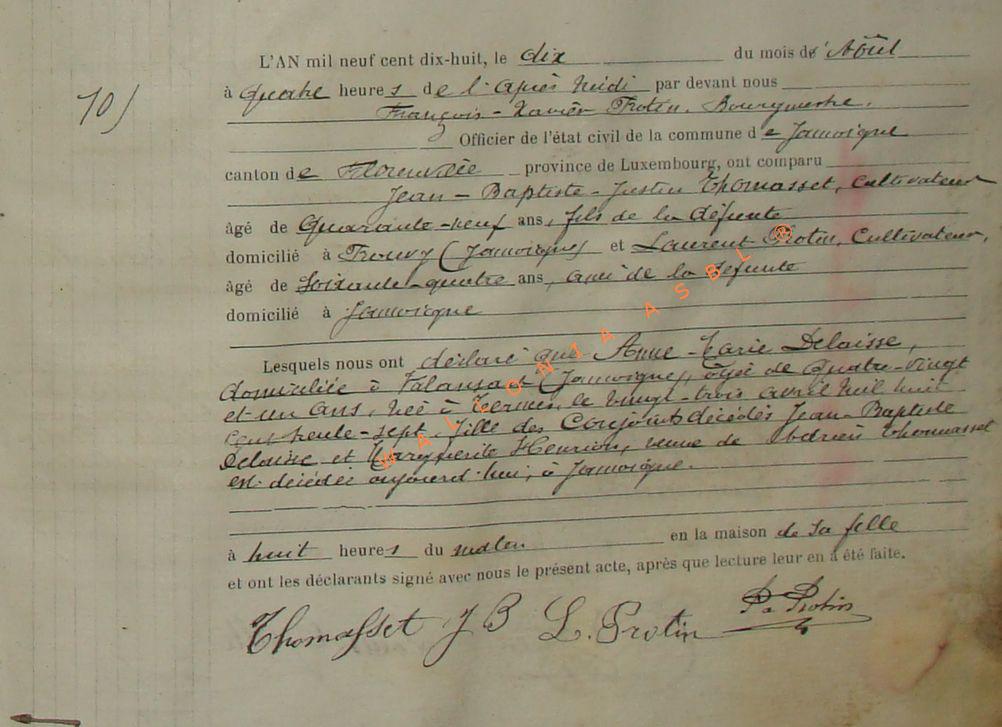 L'AN mil neuf cent dix-huit, le dix du mois de Août
10)
à quatre heures de l'après midi par devant nous
François-Xavier Protin, Bourgmestre,
Officier de l'état civil de la commune de Jamoigne
canton de Florenville province de Luxembourg, ont comparu
Jean-Baptiste-Justin Thomasset, cultivateur
âgé de Quarante-neuf ans, fils de la défunte
domicilié à Prouvy (Jamoigne) et Laurent Protin, Cultivateur,
âgé de Soixante-quatre ans, ami de la défunte
domicilié à Jamoigne
Lesquels nous ont déclaré que Anne-Marie Delaisse,
domiciliée à Valansart (Jamoigne), âgée de Quatre-vingt
et un ans, née à Termes, le vingt-trois avril mil huit
cent trente-sept, fille des Conjoints décédés Jean-Baptiste
Delaisse et Marguerite Henrion, veuve de Adrien Thomasset
est décédée aujourd'hui, à Jamoigne.
à huit heures du matin en la maison de sa fille
et ont les déclarants signé avec nous le présent acte, après que lecture leur en a été faite.
Thomasset J B L. Protin Protin
WALLONIA ASBL ®